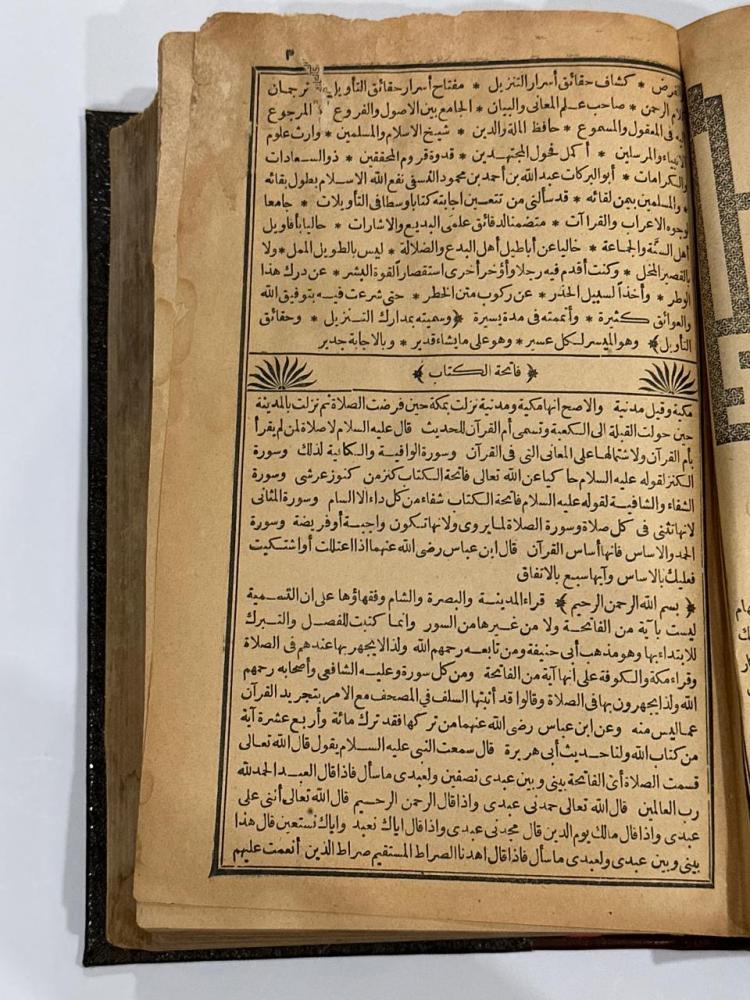 ٣
الفرض * كشاف حقائق أسرار التنزيل * مفتاح أسرار حقائق التأويل * ترجمان
الرحمن * صاحب علم المعانى والبيان * الجامع بين الاصول والفروع * المرجوع
اليه فى المعقول والمسموع * حافظ الملة والدين * شيخ الاسلام والمسلمين * وارث علوم
الانبياء والمرسلين * أكمل فحول المجتهدين * قدوة قروم المحققين * ذوالسعادات
والكرامات * أبو البركات عبدالله بن أحمد بن محمود النسفى نفع الله الاسلام بطول بقائه
* والمسلمين بيمن لقائه * قد سألنى من تتعين اجابته كتابا وسطا فى التأويلات * جامعا
لوجوه الاعراب والقرا آت * متضمنا لدقائق علمى البديع والاشارات * حاليا بأقاويل
أهل السنة والجماعة * خاليا عن أباطيل أهل البدع والضلالة * ليس بالطويل الممل * ولا
بالقصير المخل * وكنت أقدم فيه رجلا وأؤخر أخرى استقصارا لقوة البشر * عن درك هذا
الوطر * وأخذا لسبيل الحذر * عن ركوب متن الخطر * حتى شرعت فيه بتوفيق الله
والعوائق كثيرة * وأتممته فى مدة يسيرة ﴿وسميته بمدارك التنزيل * وحقائق
التأويل﴾ وهو الميسر لكل عسير * وهو على ما يشاء قدير * وبالاجابة جدير
﴿ فاتحة الكتاب ﴾
مكية وقيل مدنية والاصح انها مكية ومدنية نزلت بمكة حين فرضت الصلاة ثم نزلت بالمدينة
حين حولت القبلة الى الكعبة وتسمى أم القرآن للحديث قال عليه السلام لا صلاة لمن لم يقرأ
بأم القرآن ولاشتمالها على المعانى التى فى القرآن وسورة الوافية والكافية لذلك وسورة
الكنز لقوله عليه السلام حاكيا عن الله تعالى فاتحة الكتاب كنز من كنوز عرشى وسورة
الشفاء والشافية لقوله عليه السلام فاتحة الكتاب شفاء من كل داء الا السام وسورة المثانى
لانها تثنى فى كل صلاة وسورة الصلاة لما يروى ولانها تكون واجبة أو فريضة وسورة
الحمد والاساس فانها أساس القرآن قال ابن عباس رضى الله عنهما اذا اعتللت أو اشتكيت
فعليك بالاساس وآيها سبع بالاتفاق
﴿ بسم الله الرحمن الرحيم ﴾ قراء المدينة والبصرة والشام وفقهاؤها على ان التسمية
ليست بآية من الفاتحة ولا من غيرها من السور وانما كتبت للفصل والتبرك
للابتداء بها وهو مذهب أبى حنيفة ومن تابعه رحمهم الله ولذا لا يجهر بها عندهم فى الصلاة
وقراء مكة والكوفة على أنها آية من الفاتحة ومن كل سورة وعليه الشافعى وأصحابه رحمهم
الله ولذا يجهرون بها فى الصلاة وقالوا قد أثبتها السلف فى المصحف مع الامر بتجريد القرآن
عما ليس منه وعن ابن عباس رضى الله عنهما من تركها فقد ترك مائة وأربع عشرة آية
من كتاب الله ولنا حديث أبى هريرة قال سمعت النبى عليه السلام يقول قال الله تعالى
قسمت الصلاة أى الفاتحة بينى وبين عبدى نصفين ولعبدى ما سأل فاذا قال العبد الحمد لله
رب العالمين قال الله تعالى حمدنى عبدى واذا قال الرحمن الرحيم قال الله تعالى أثنى على
عبدى واذا قال مالك يوم الدين قال مجدنى عبدى واذا قال اياك نعبد واياك نستعين قال هذا
بينى وبين عبدى ولعبدى ما سأل فاذا قال اهدنا الصراط المستقيم صراط الذين أنعمت عليهم